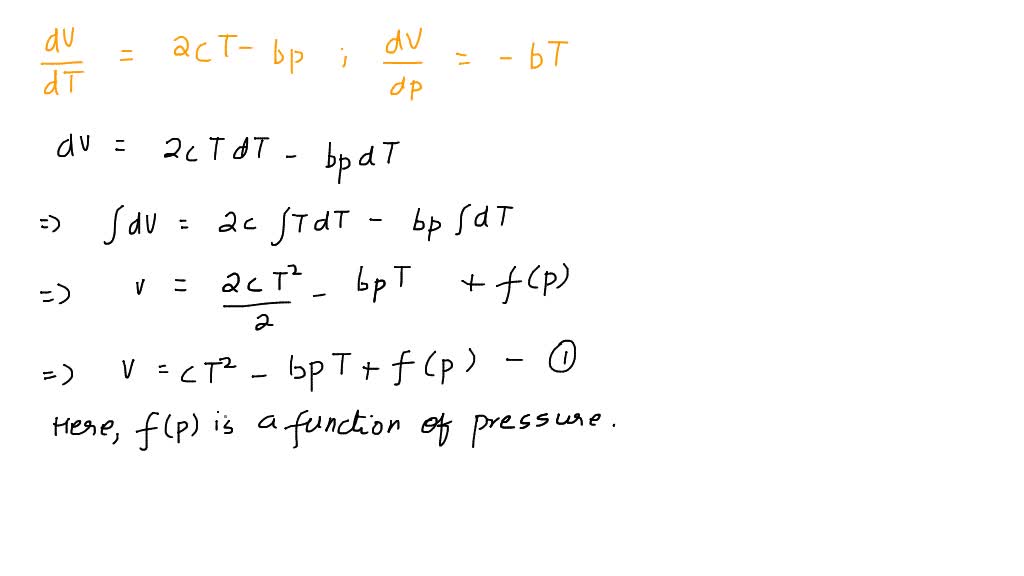 dV/dT = 2cT - bp ; dV/dp = - bT
dV = 2cTdT - bpdT
=> ∫dV = 2c ∫TdT - bp ∫dT
=> V = 2cT²/2 - bpT + f(p)
=> V = cT² - bpT + f(p) - ①
Here, f(p) is a function of pressure.